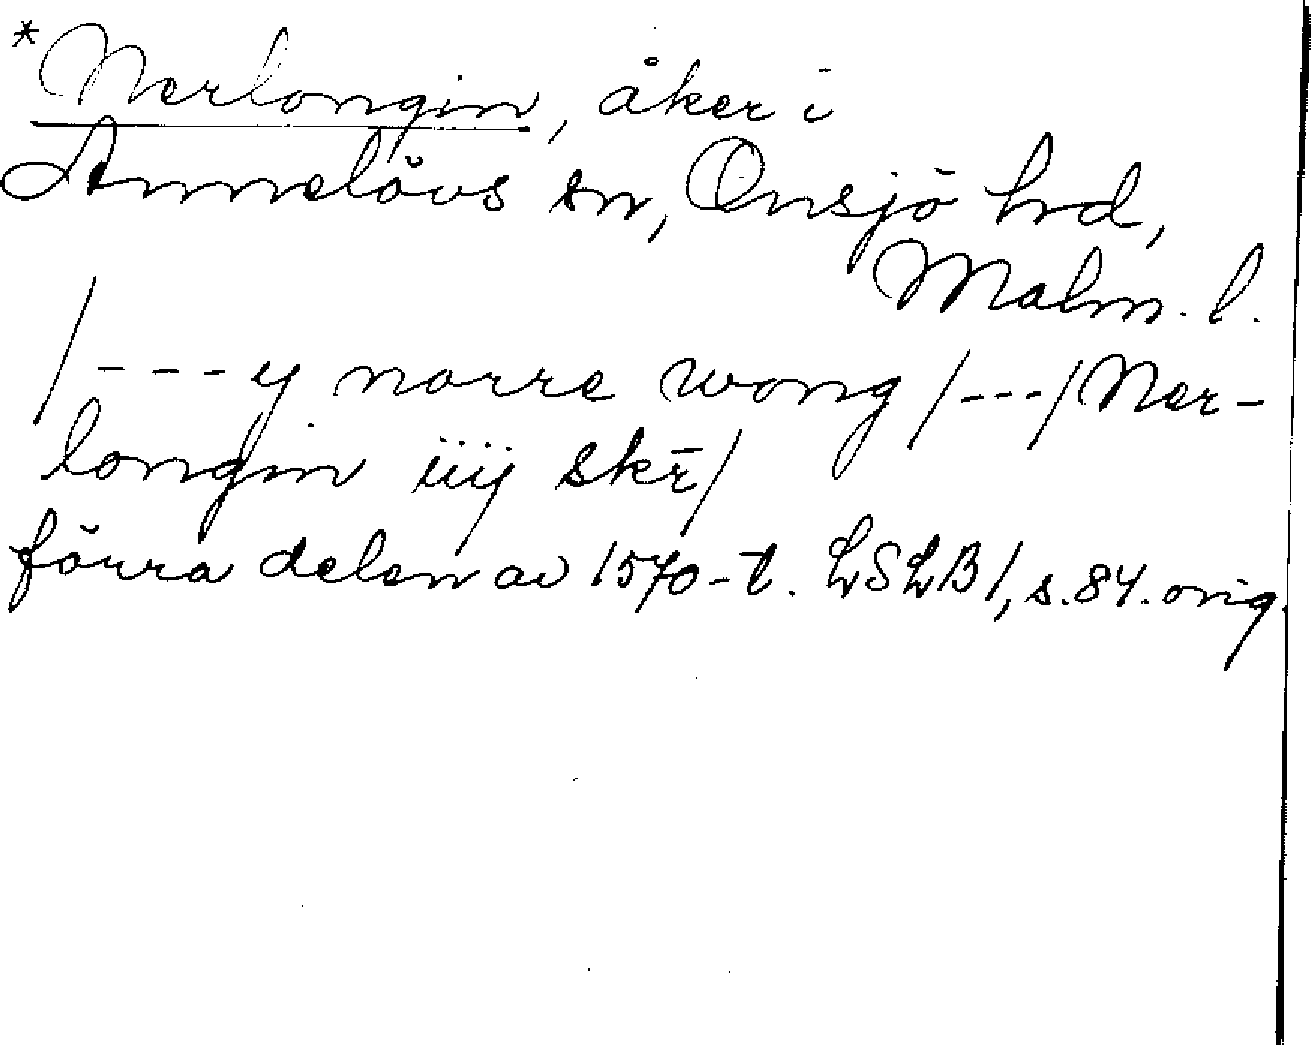 *Nerlongin, åker i
Annelövs sn, Onsjö hrd,
Malm. l.
/---y norre wong /---/ Ner-
longin iiij skr̄/
förra delen av 1570-t. LSLB1, s.84. orig.